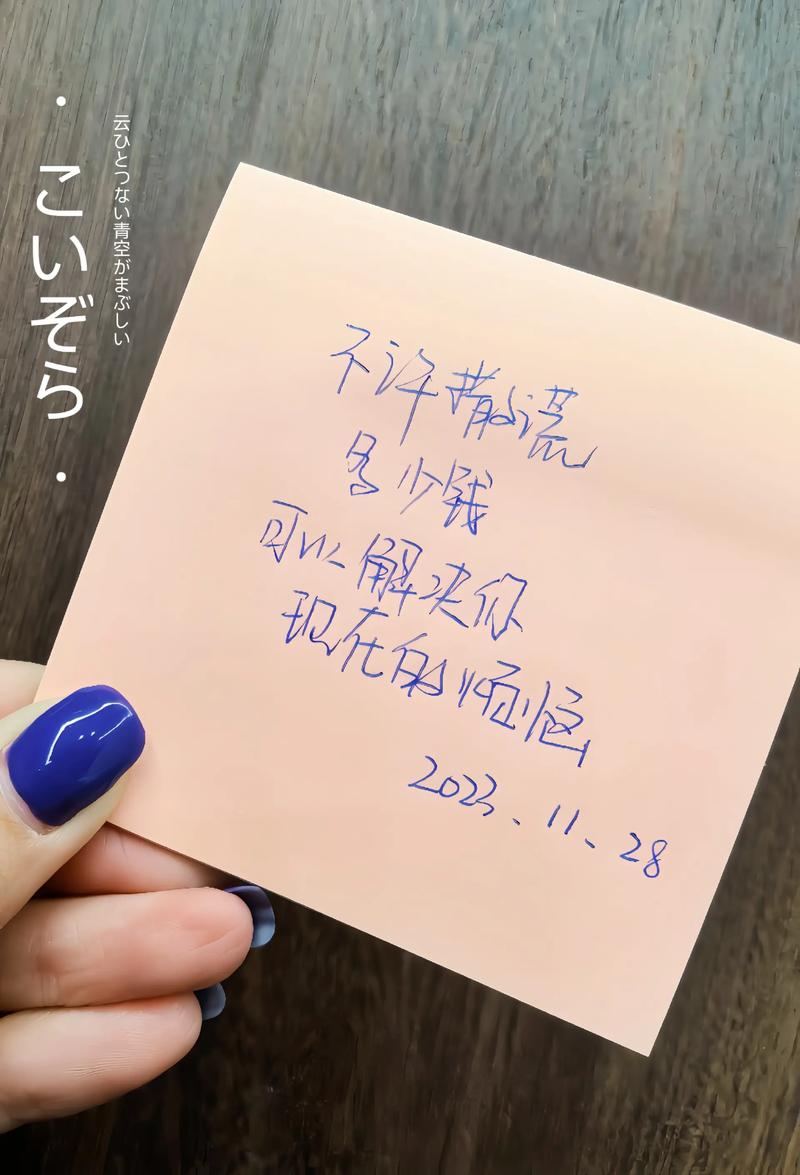 ・こいぞら・
云ひとつない青空がまぶしい
不许撒谎
多少钱
可以解决你
现在的烦恼
2023.11.28